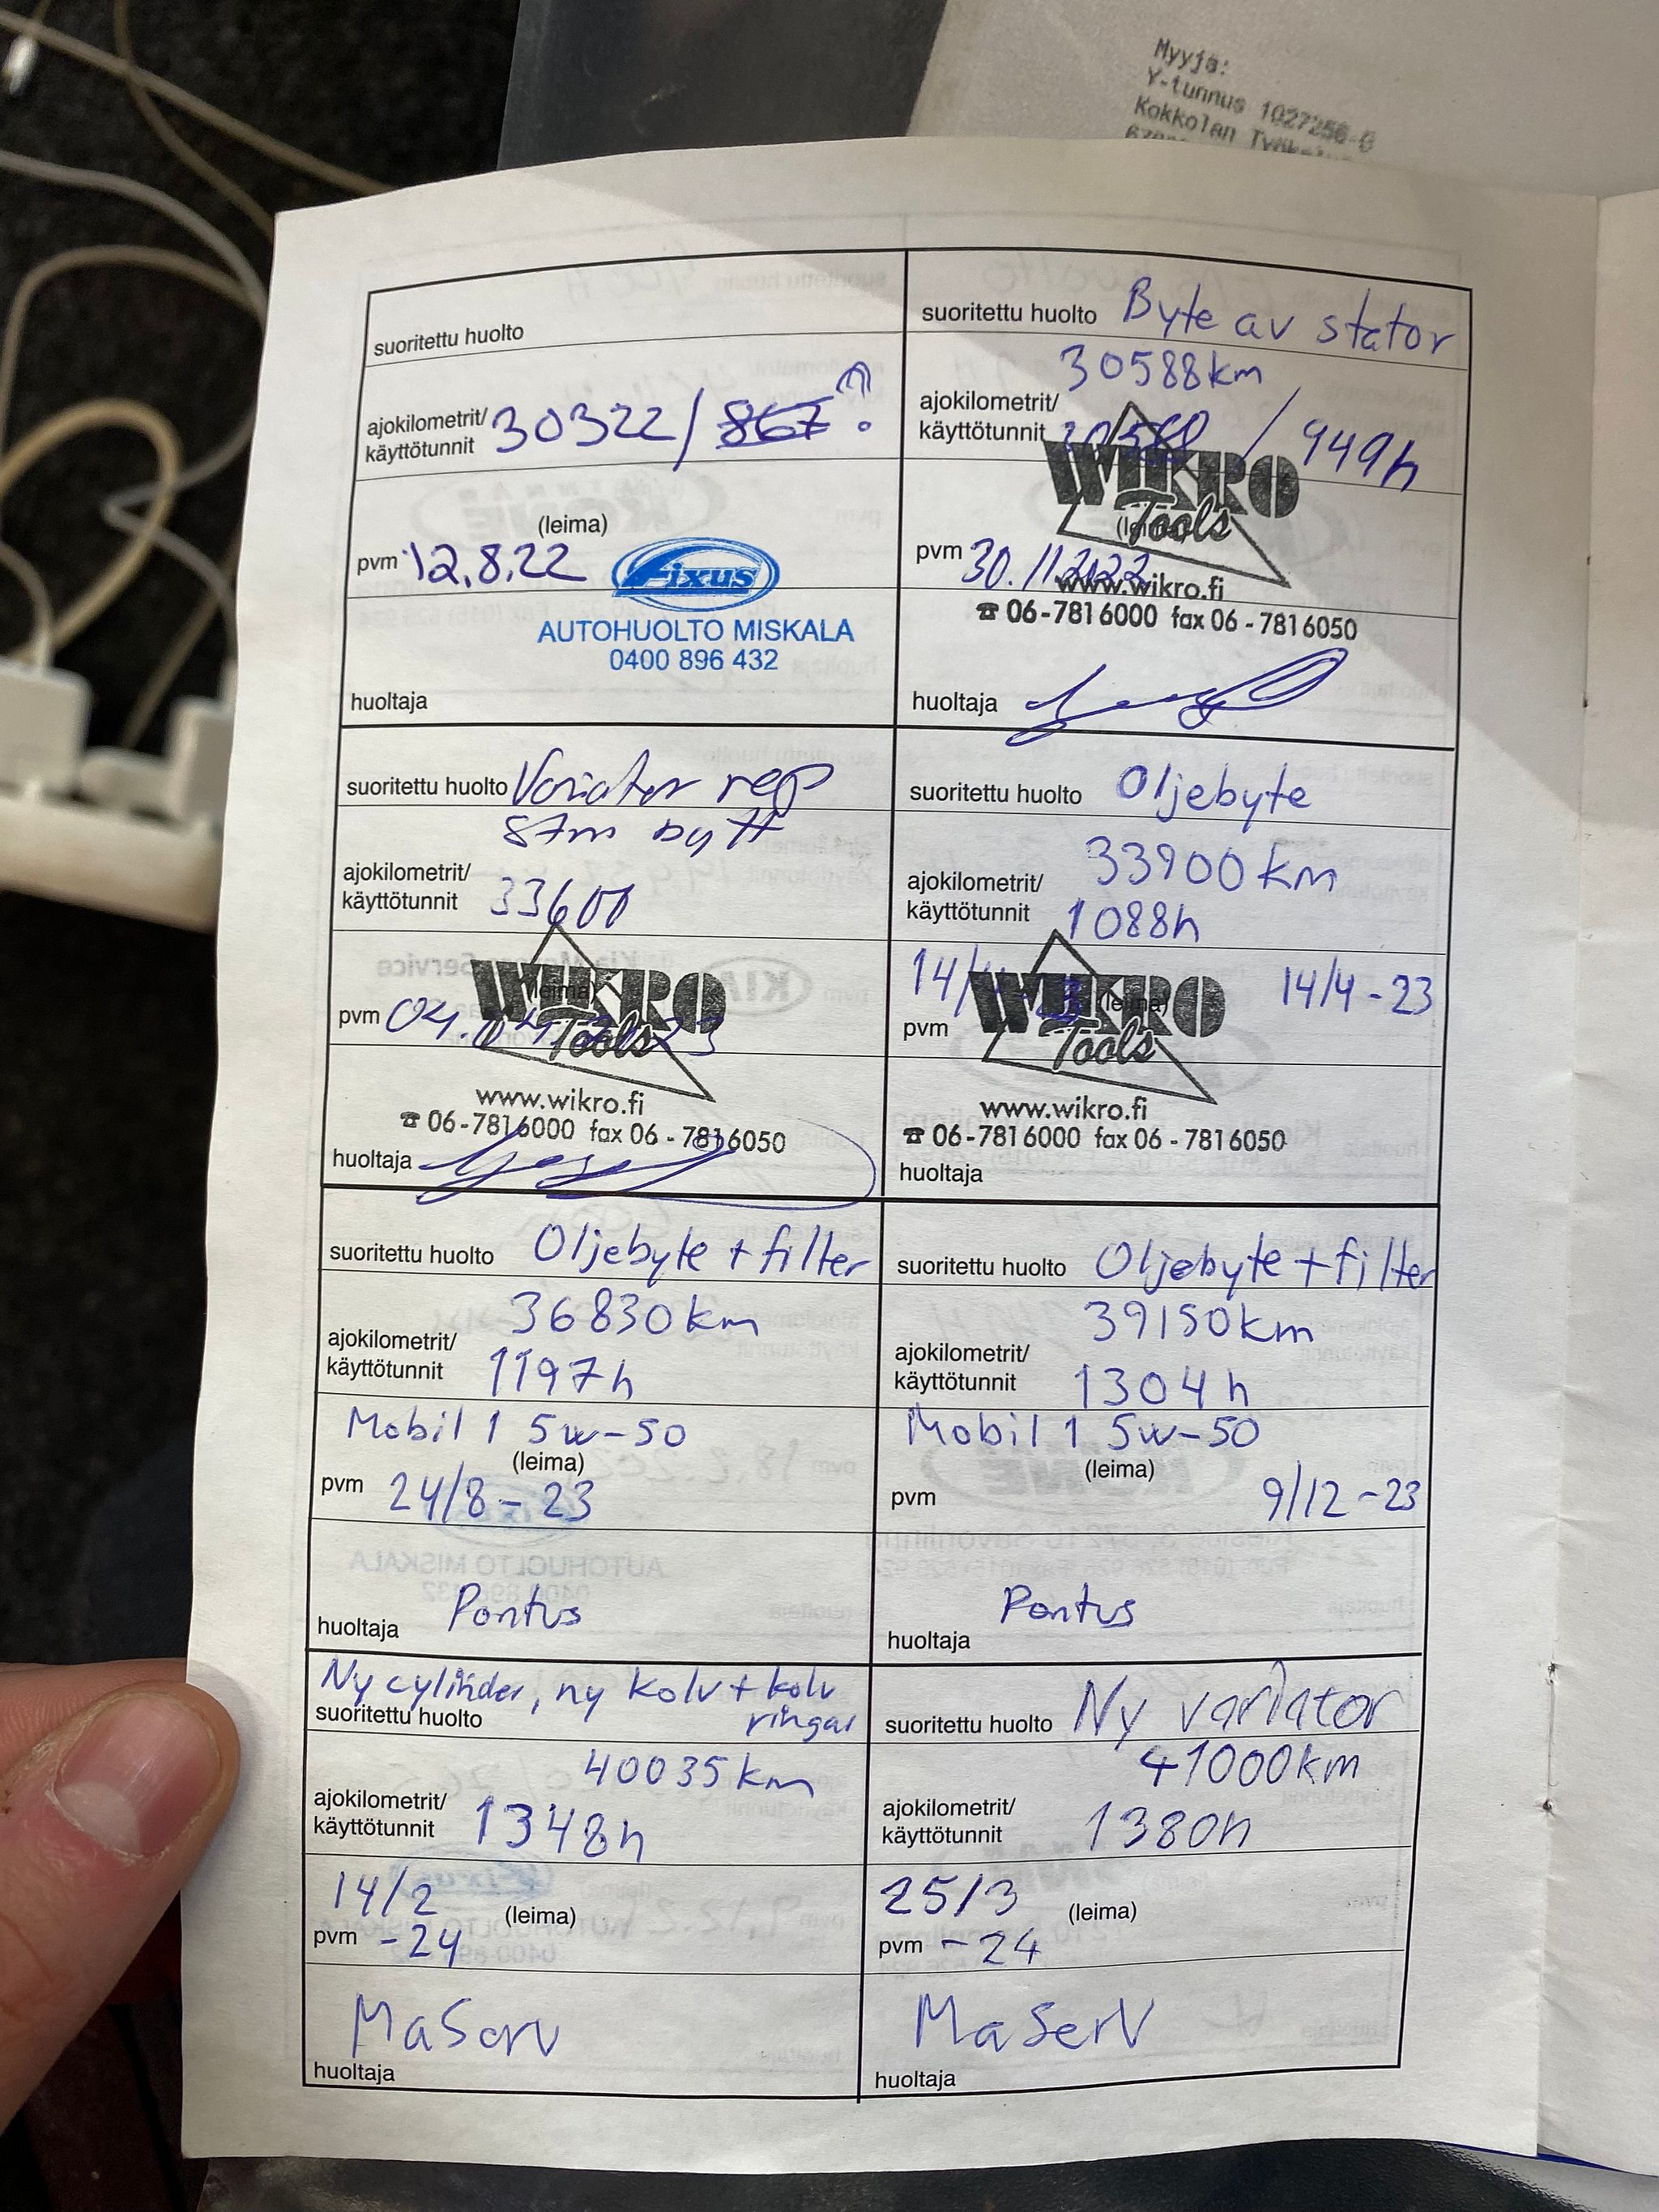 Myyjä:
Y-tunnus 1027256-0
Kokkolan
suoritettu huolto
ajokilometrit/
käyttötunnit 30322/867 ?
(leima)
pvm 12.8.22
Fixus
AUTOHUOLTO MISKALA
0400 896 432
huoltaja
suoritettu huolto Byte av stator
30588km
ajokilometrit/
käyttötunnit 30588 / 949h
WIKRO
Tools
(leima)
pvm 30.11.2022
www.wikro.fi
☎ 06-7816000 fax 06-7816050
huoltaja
suoritettu huolto Variator rep
bytt
ajokilometrit/
käyttötunnit 33600
WIKRO
(leima)
pvm 04.04.2023
Tools
www.wikro.fi
☎ 06-7816000 fax 06-7816050
huoltaja
suoritettu huolto Oljebyte
33900km
ajokilometrit/
käyttötunnit 1088h
14/4-23
WIKRO
(leima)
pvm
Tools
www.wikro.fi
☎ 06-7816000 fax 06-7816050
huoltaja
suoritettu huolto Oljebyte + filter
36830km
ajokilometrit/
käyttötunnit 1197h
Mobil 1 5w-50
(leima)
pvm 24/8-23
Pontus
huoltaja
suoritettu huolto Oljebyte + filter
39150km
ajokilometrit/
käyttötunnit 1304h
Mobil 1 5w-50
(leima)
pvm 9/12-23
Pontus
huoltaja
Ny cylinder, ny kolv + kolv
suoritettu huolto ringar
40035km
ajokilometrit/
käyttötunnit 1348h
14/2
(leima)
pvm -24
MaServ
huoltaja
suoritettu huolto Ny variator
41000km
ajokilometrit/
käyttötunnit 1380h
25/3
(leima)
pvm -24
MaServ
huoltaja